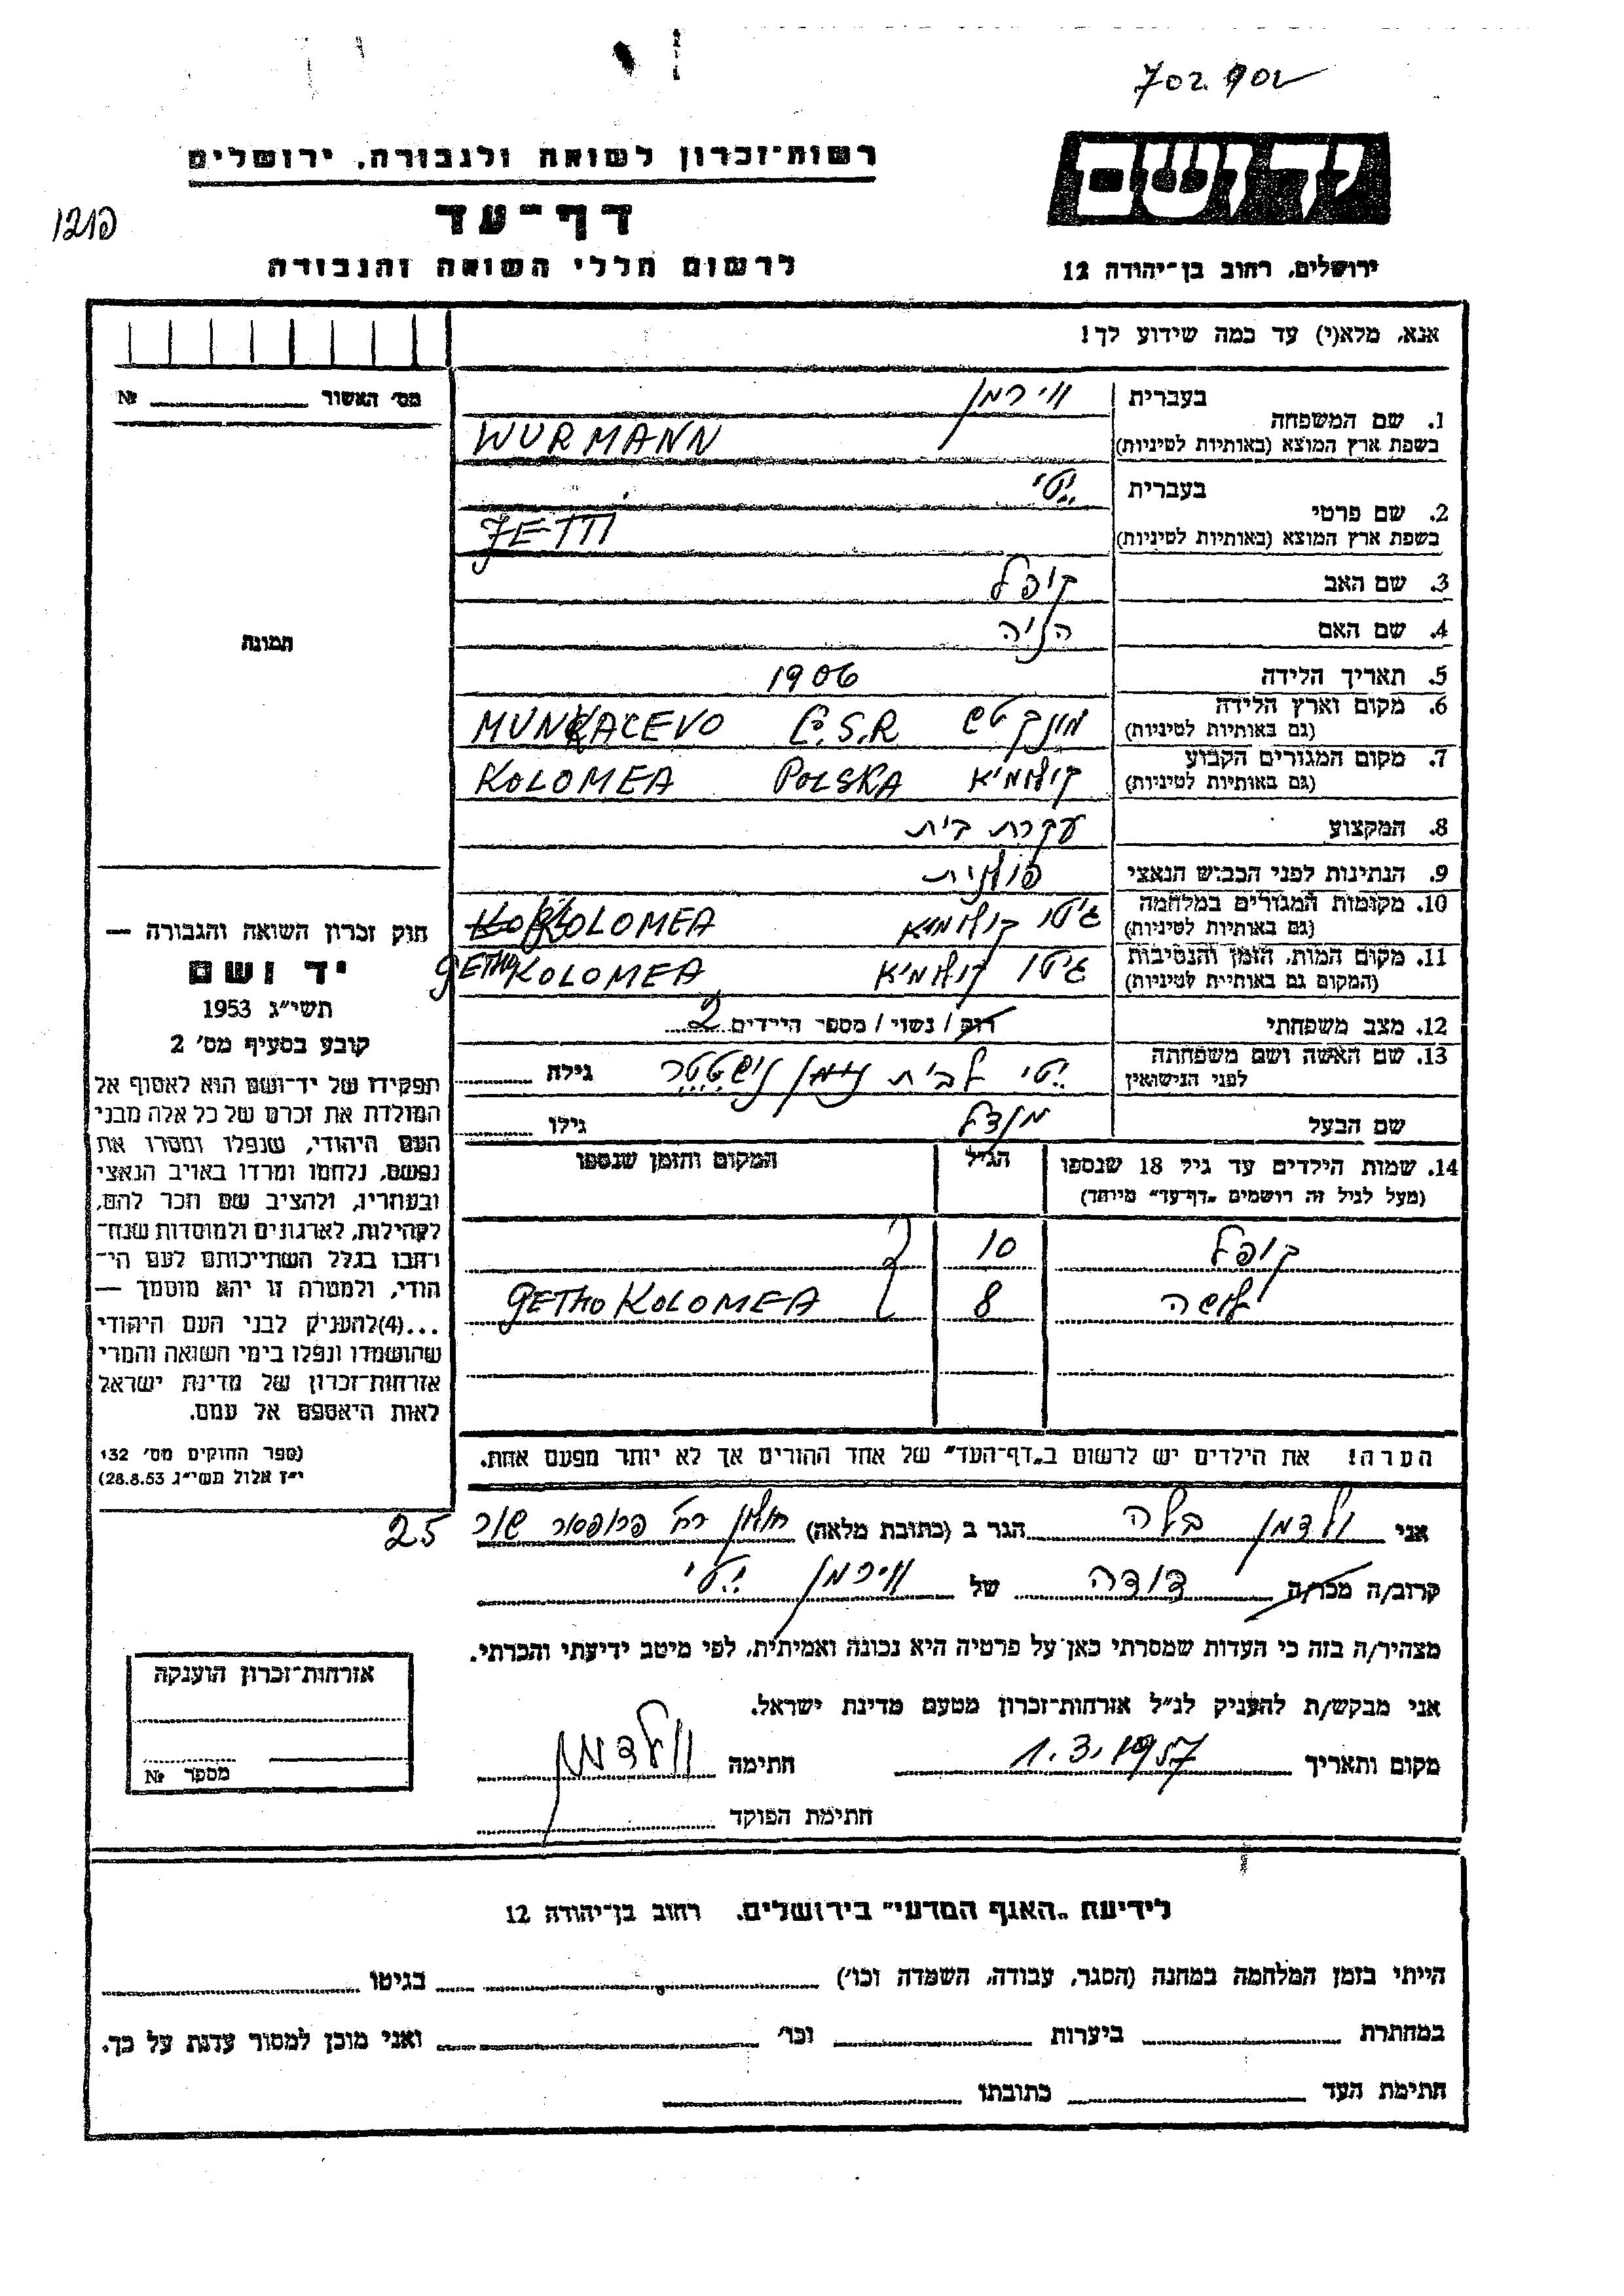 702.902
רשות־זכרון לשואה ולגבורה, ירושלים
יד ושם
דף־עד
לרשום חללי השואה והגבורה
ירושלים, רחוב בן־יהודה 12
אנא, מלא(י) עד כמה שידוע לך!
מס׳ האשור № 
1. שם המשפחה בעברית ווירמן
בשפת ארץ המוצא (באותיות לטיניות) WURMANN
2. שם פרטי בעברית יטי
בשפת ארץ המוצא (באותיות לטיניות) JETTI
3. שם האב קופל
4. שם האם הניה
תמונה
5. תאריך הלידה 1906
6. מקום וארץ הלידה (גם באותיות לטיניות) מונקטש Č.S.R MUNKACEVO
7. מקום המגורים הקבוע (גם באותיות לטיניות) קולומיא POLSKA KOLOMEA
8. המקצוע עקרת בית
9. הנתינות לפני הכבוש הנאצי פולנית
10. מקומות המגורים במלחמה (גם באותיות לטיניות) גיטו קולומיא KOLOMEA
11. מקום המות, הזמן והנסיבות (המקום גם באותיות לטיניות) גיטו קולומיא GETHO KOLOMEA
12. מצב משפחתי רוק / נשוי / מספר הילדים 2
13. שם האשה ושם משפחתה לפני הנישואין יטי לבית גילה
שם הבעל מנדל גילו
14. שמות הילדים עד גיל 18 שנספו (מעל לגיל זה רושמים „דף־עד” מיוחד) הגיל המקום והזמן שנספו
קופל 10
8 GETHO KOLOMEA
הערה! את הילדים יש לרשום ב„דף־העד” של אחד ההורים אך לא יותר מפעם אחת.
חוק זכרון השואה והגבורה —
יד ושם
תשי״ג 1953
קובע בסעיף מס׳ 2
תפקידו של יד־ושם הוא לאסוף אל
המולדת את זכרם של כל אלה מבני
העם היהודי, שנפלו ומסרו את
נפשם, נלחמו ומרדו באויב הנאצי
ובעוזריו, ולהציב שם וזכר להם,
לקהילות, לארגונים ולמוסדות שנח־
רבו בגלל השתייכותם לעם הי־
הודי, ולמטרה זו יהא מוסמך —
...(4)להעניק לבני העם היהודי
שהושמדו ונפלו בימי השואה והמרי
אזרחות־זכרון של מדינת ישראל
לאות היאספם אל עמם.
(ספר החוקים מס׳ 132
י״ז אלול תשי״ג 28.8.53)
אני ולדמן בלה הגר ב (כתובת מלאה) חולון רח׳ פרופסור שור 25
קרוב/ה מכר/ה דודה של ווירמן יטי
מצהיר/ה בזה כי העדות שמסרתי כאן על פרטיה היא נכונה ואמיתית, לפי מיטב ידיעתי והכרתי.
אני מבקש/ת להעניק לנ״ל אזרחות־זכרון מטעם מדינת ישראל.
מקום ותאריך 1.3.1957 חתימה וולדמן
חתימת הפוקד
אזרחות־זכרון הוענקה
מספר №
לידיעת „האגף המדעי” בירושלים, רחוב בן־יהודה 12
הייתי בזמן המלחמה במחנה (הסגר, עבודה, השמדה וכו׳) בגיטו
במחתרת ביערות וכו׳ ואני מוכן למסור עדות על כך.
חתימת העד כתובתו